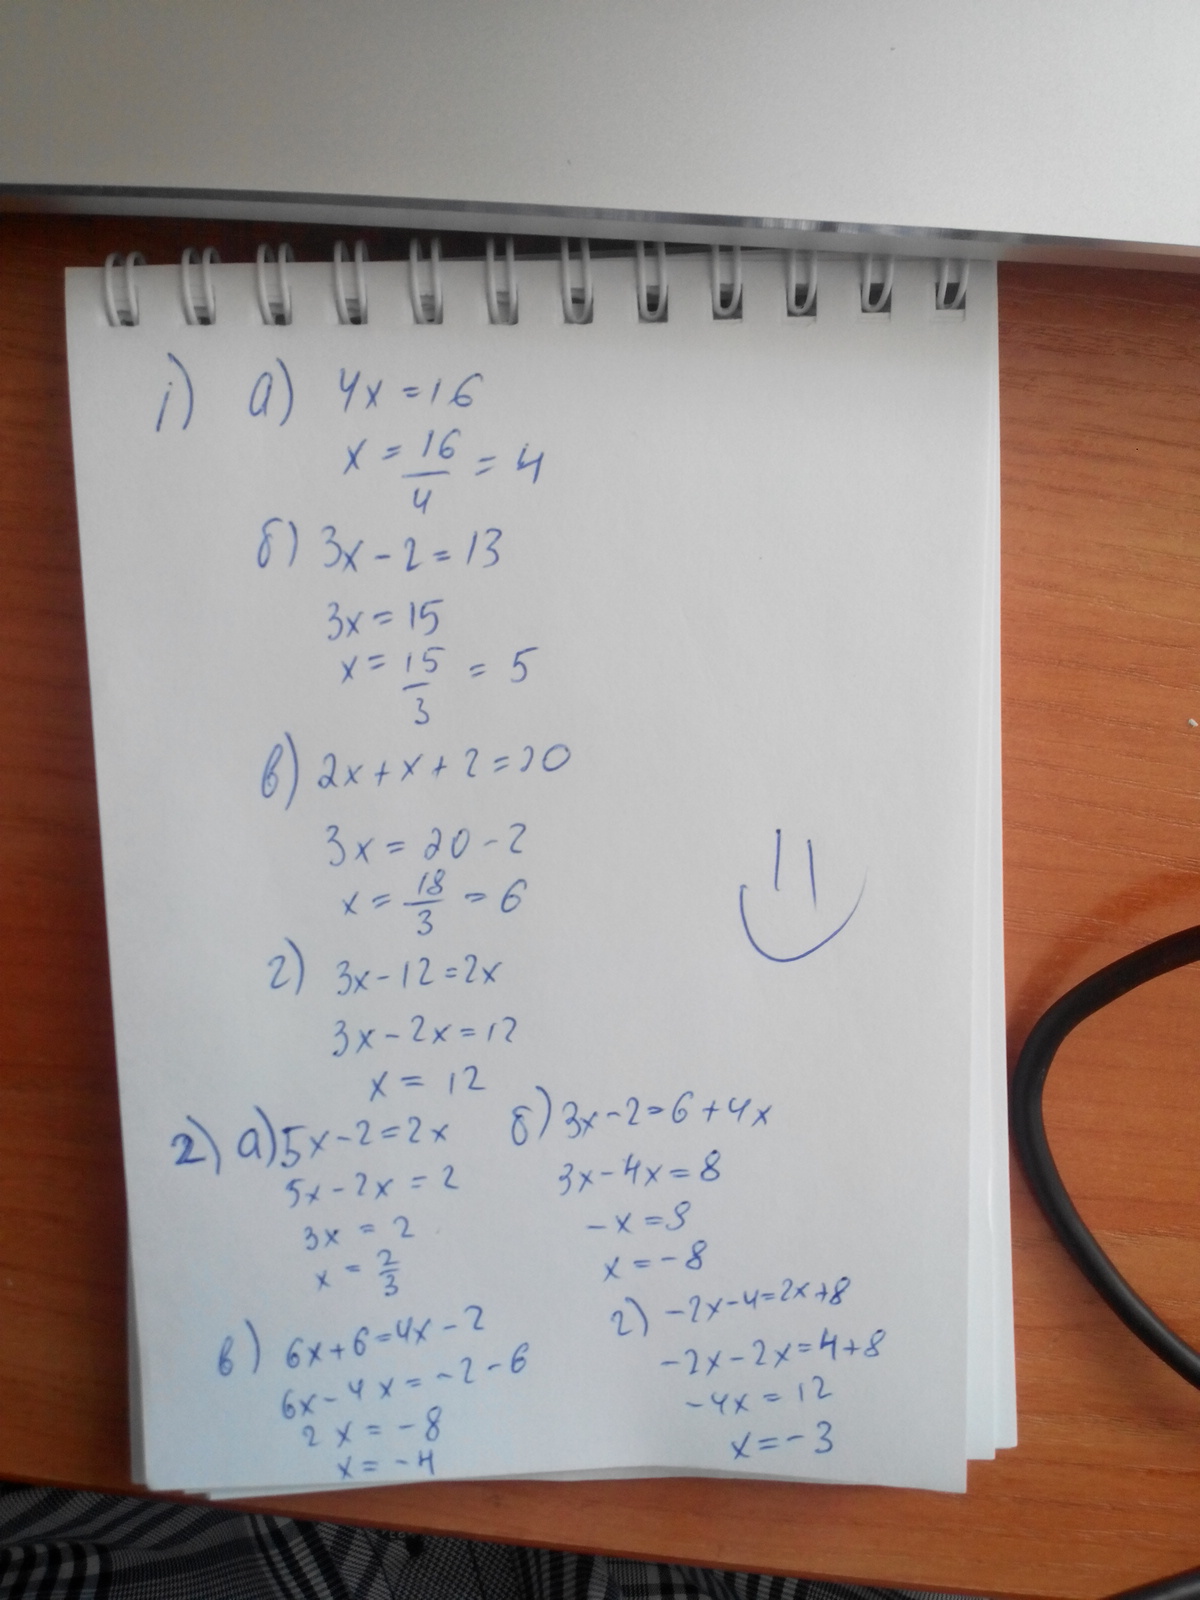 1) а) 4x = 16
x = 16/4 = 4
б) 3x - 2 = 13
3x = 15
x = 15/3 = 5
в) 2x + x + 2 = 20
3x = 20 - 2
x = 18/3 = 6
г) 3x - 12 = 2x
3x - 2x = 12
x = 12
2) а) 5x - 2 = 2x
5x - 2x = 2
3x = 2
x = 2/3
б) 3x - 2 = 6 + 4x
3x - 4x = 8
-x = 8
x = -8
в) 6x + 6 = 4x - 2
6x - 4x = -2 - 6
2x = -8
x = -4
г) -2x - 4 = 2x + 8
-2x - 2x = 4 + 8
-4x = 12
x = -3